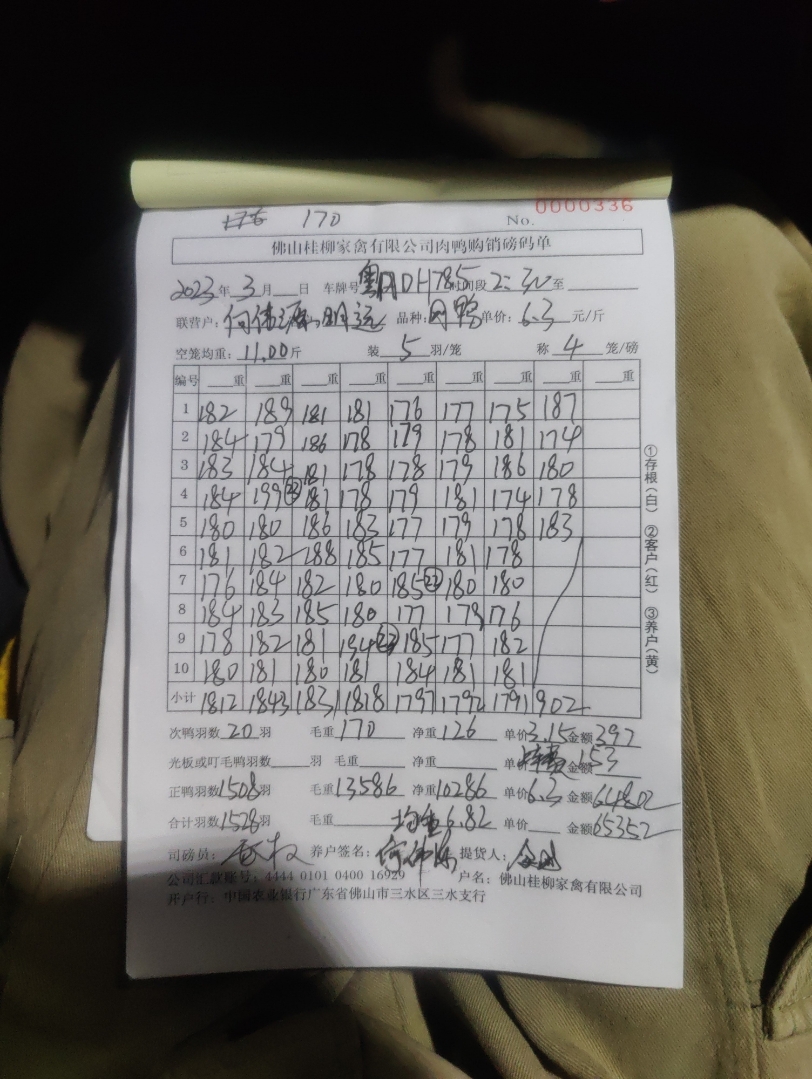 0000336
170 No.
佛山桂柳家禽有限公司肉鸭购销磅码单
2023年3月 日 车牌号 粤 DH785 时间段 2:30至
联营户: 何伟源 明远 品种: 肉鸭 单价: 6.3 元/斤
空笼均重: 11.00斤 装 5 羽/笼 称 4 笼/磅
编号 重 重 重 重 重 重 重 重 重
1 182 189 181 181 176 177 175 187
2 184 179 186 178 179 178 181 174
3 183 184 181 178 178 179 186 180
4 184 199 22 181 178 179 181 174 178
5 180 180 186 183 177 179 178 183
6 181 182 188 185 177 181 178
7 176 184 182 180 185 22 180 180
8 184 183 185 180 177 179 176
9 178 182 181 194 22 185 177 182
10 180 181 180 181 184 181 181
小计 1812 1843 1831 1818 1797 1792 1791 902
次鸭羽数 20 羽 毛重 170 净重 126 单价 3.15 金额 397
光板或叮毛鸭羽数 羽 毛重 净重 单价 金额 153
正鸭羽数 1508羽 毛重 13586 净重 10286 单价 6.3 金额 64802
合计羽数 1528羽 毛重 均重 6.82 单价 金额 65352
司磅员: 养户签名: 何伟源 提货人:
公司汇款账号: 4444 0101 0400 16929 户名: 佛山桂柳家禽有限公司
开户行: 中国农业银行广东省佛山市三水区三水支行
①存根(白) ②客户(红) ③养户(黄)